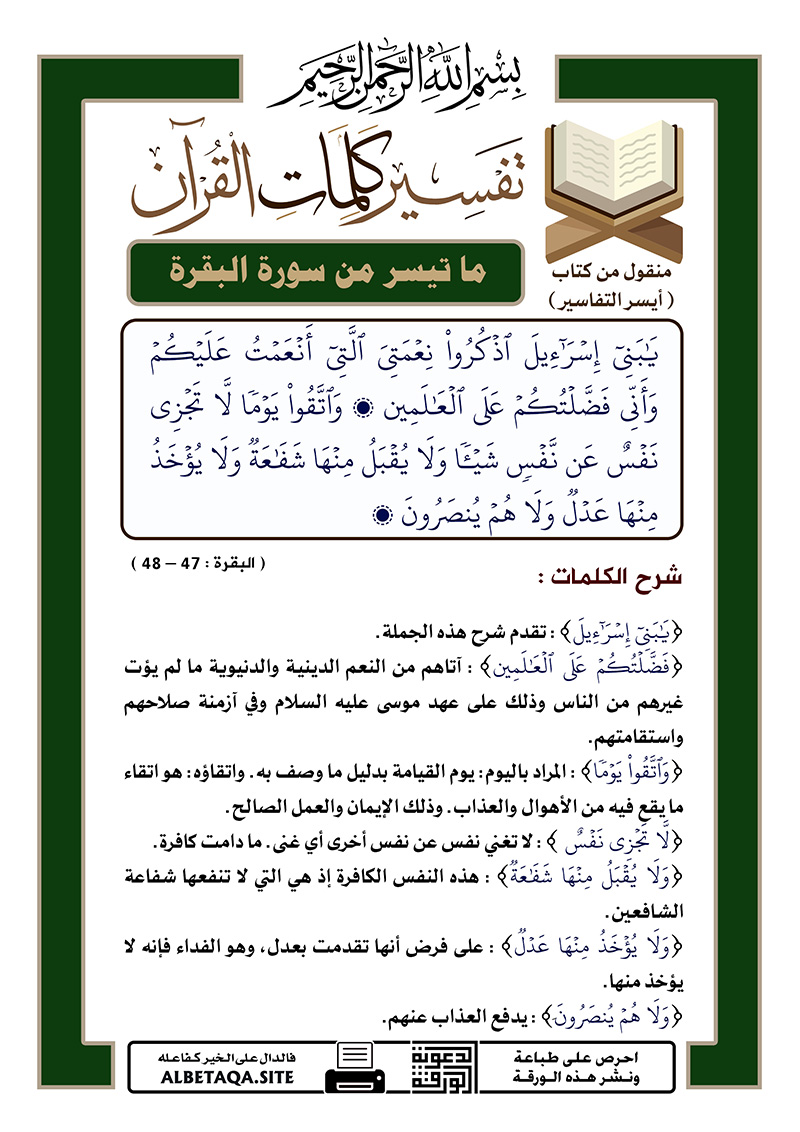 بِسْمِ اللَّهِ الرَّحْمَنِ الرَّحِيمِ
تَفْسِير كَلِمَاتِ القُرْآن
ما تيسر من سورة البقرة
منقول من كتاب
( أيسر التفاسير )
يَٰبَنِىٓ إِسْرَٰٓءِيلَ ٱذْكُرُوا۟ نِعْمَتِىَ ٱلَّتِىٓ أَنْعَمْتُ عَلَيْكُمْ
وَأَنِّى فَضَّلْتُكُمْ عَلَى ٱلْعَٰلَمِين ۞ وَٱتَّقُوا۟ يَوْمًا لَّا تَجْزِى
نَفْسٌ عَن نَّفْسٍ شَيْـًٔا وَلَا يُقْبَلُ مِنْهَا شَفَٰعَةٌ وَلَا يُؤْخَذُ
مِنْهَا عَدْلٌ وَلَا هُمْ يُنصَرُونَ ۞
( البقرة : 47 – 48 )
شرح الكلمات :
﴿يَٰبَنِىٓ إِسْرَٰٓءِيلَ﴾ : تقدم شرح هذه الجملة.
﴿فَضَّلْتُكُمْ عَلَى ٱلْعَٰلَمِين﴾ : آتاهم من النعم الدينية والدنيوية ما لم يؤت
غيرهم من الناس وذلك على عهد موسى عليه السلام وفي آزمنة صلاحهم
واستقامتهم.
﴿وَٱتَّقُوا۟ يَوْمًا﴾ : المراد باليوم: يوم القيامة بدليل ما وصف به. واتقاؤه: هو اتقاء
ما يقع فيه من الأهوال والعذاب. وذلك الإيمان والعمل الصالح.
﴿لَّا تَجْزِى نَفْسٌ ﴾ : لا تغني نفس عن نفس أخرى أي غنى. ما دامت كافرة.
﴿وَلَا يُقْبَلُ مِنْهَا شَفَٰعَةٌ﴾ : هذه النفس الكافرة إذ هي التي لا تنفعها شفاعة
الشافعين.
﴿وَلَا يُؤْخَذُ مِنْهَا عَدْلٌ﴾ : على فرض أنها تقدمت بعدل، وهو الفداء فإنه لا
يؤخذ منها.
﴿وَلَا هُمْ يُنصَرُونَ﴾ : يدفع العذاب عنهم.
احرص على طباعة
ونشر هذه الورقة
الورقة الدعوية
فالدال على الخير كفاعله
ALBETAQA.SITE